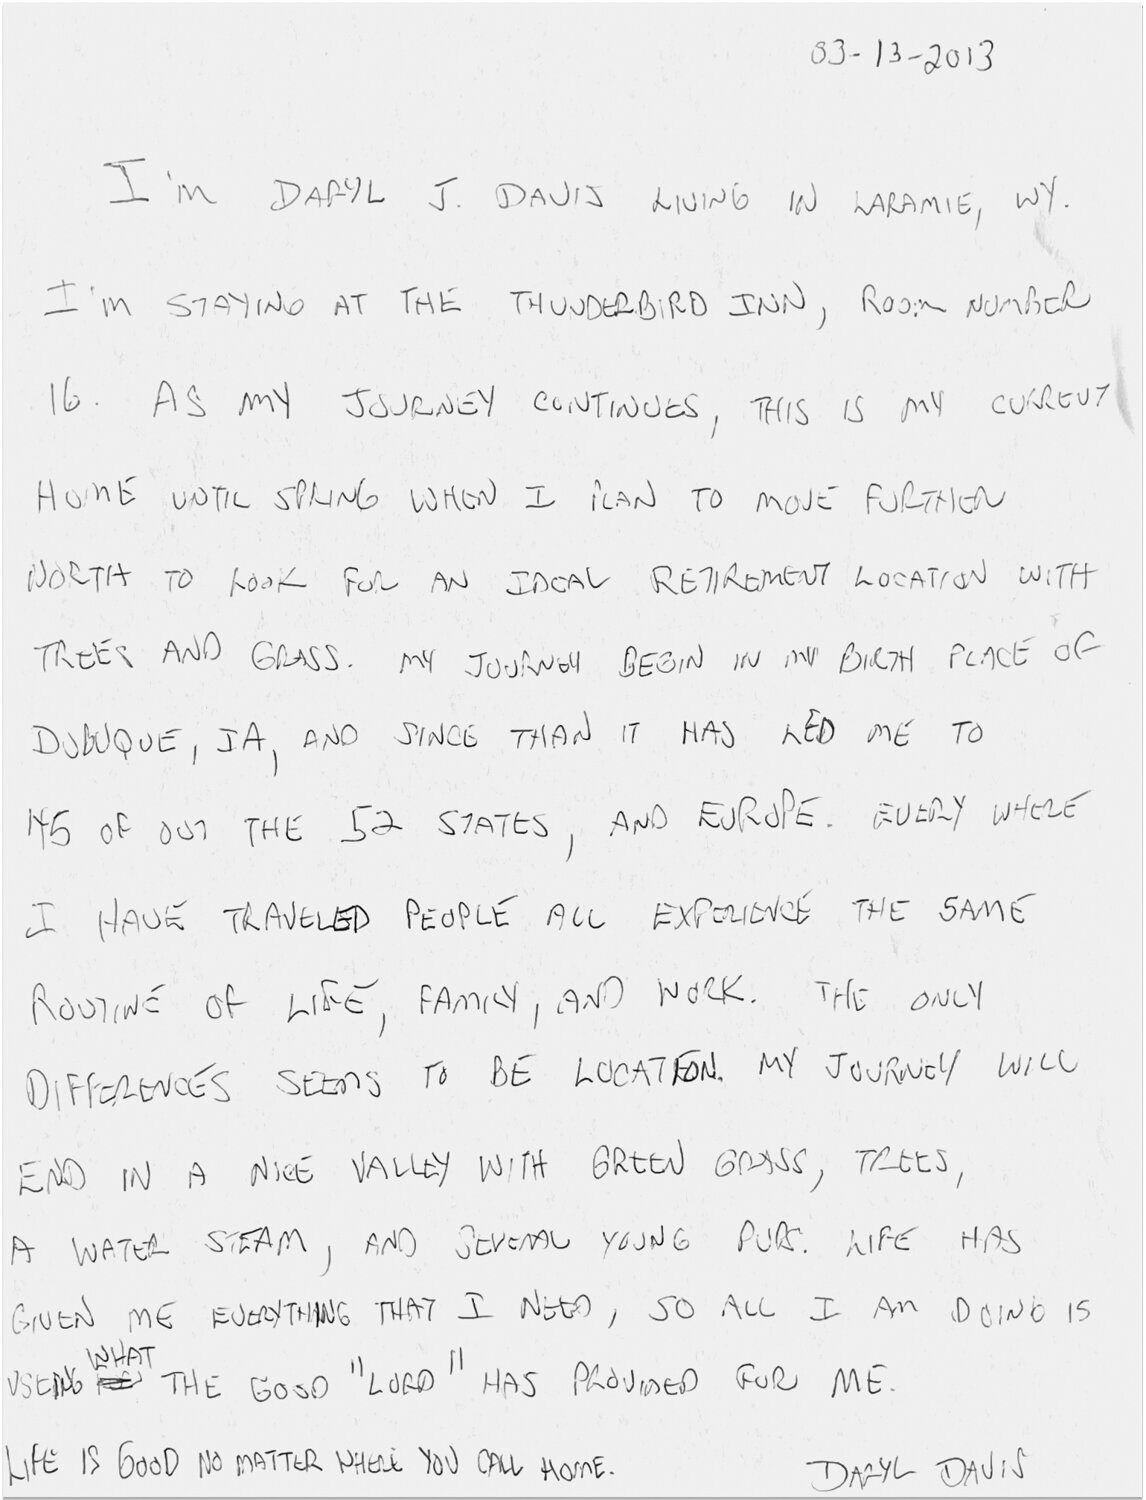 03-13-2013
I'm DARYL J. DAVIS LIVING IN LARAMIE, WY.
I'm STAYING AT THE THUNDERBIRD INN, ROOM NUMBER
16. AS MY JOURNEY CONTINUES, THIS IS MY CURRENT
HOME UNTIL SPRING WHEN I PLAN TO MOVE FURTHER
NORTH TO LOOK FOR AN IDEAL RETIREMENT LOCATION WITH
TREES AND GRASS. MY JOURNEY BEGIN IN MY BIRTH PLACE OF
DUBUQUE, IA, AND SINCE THAN IT HAS LED ME TO
45 OF OUT THE 52 STATES, AND EUROPE. EVERY WHERE
I HAVE TRAVELED PEOPLE ALL EXPERIENCE THE SAME
ROUTINE OF LIFE, FAMILY, AND WORK. THE ONLY
DIFFERENCES SEEMS TO BE LOCATION. MY JOURNEY WILL
END IN A NICE VALLEY WITH GREEN GRASS, TREES,
A WATER STEAM, AND SEVERAL YOUNG PUPS. LIFE HAS
GIVEN ME EVERYTHING THAT I NEED, SO ALL I AM DOING IS
USEING WHAT THE GOOD "LORD" HAS PROVIDED FOR ME.
LIFE IS GOOD NO MATTER WHERE YOU CALL HOME. DARYL DAVIS